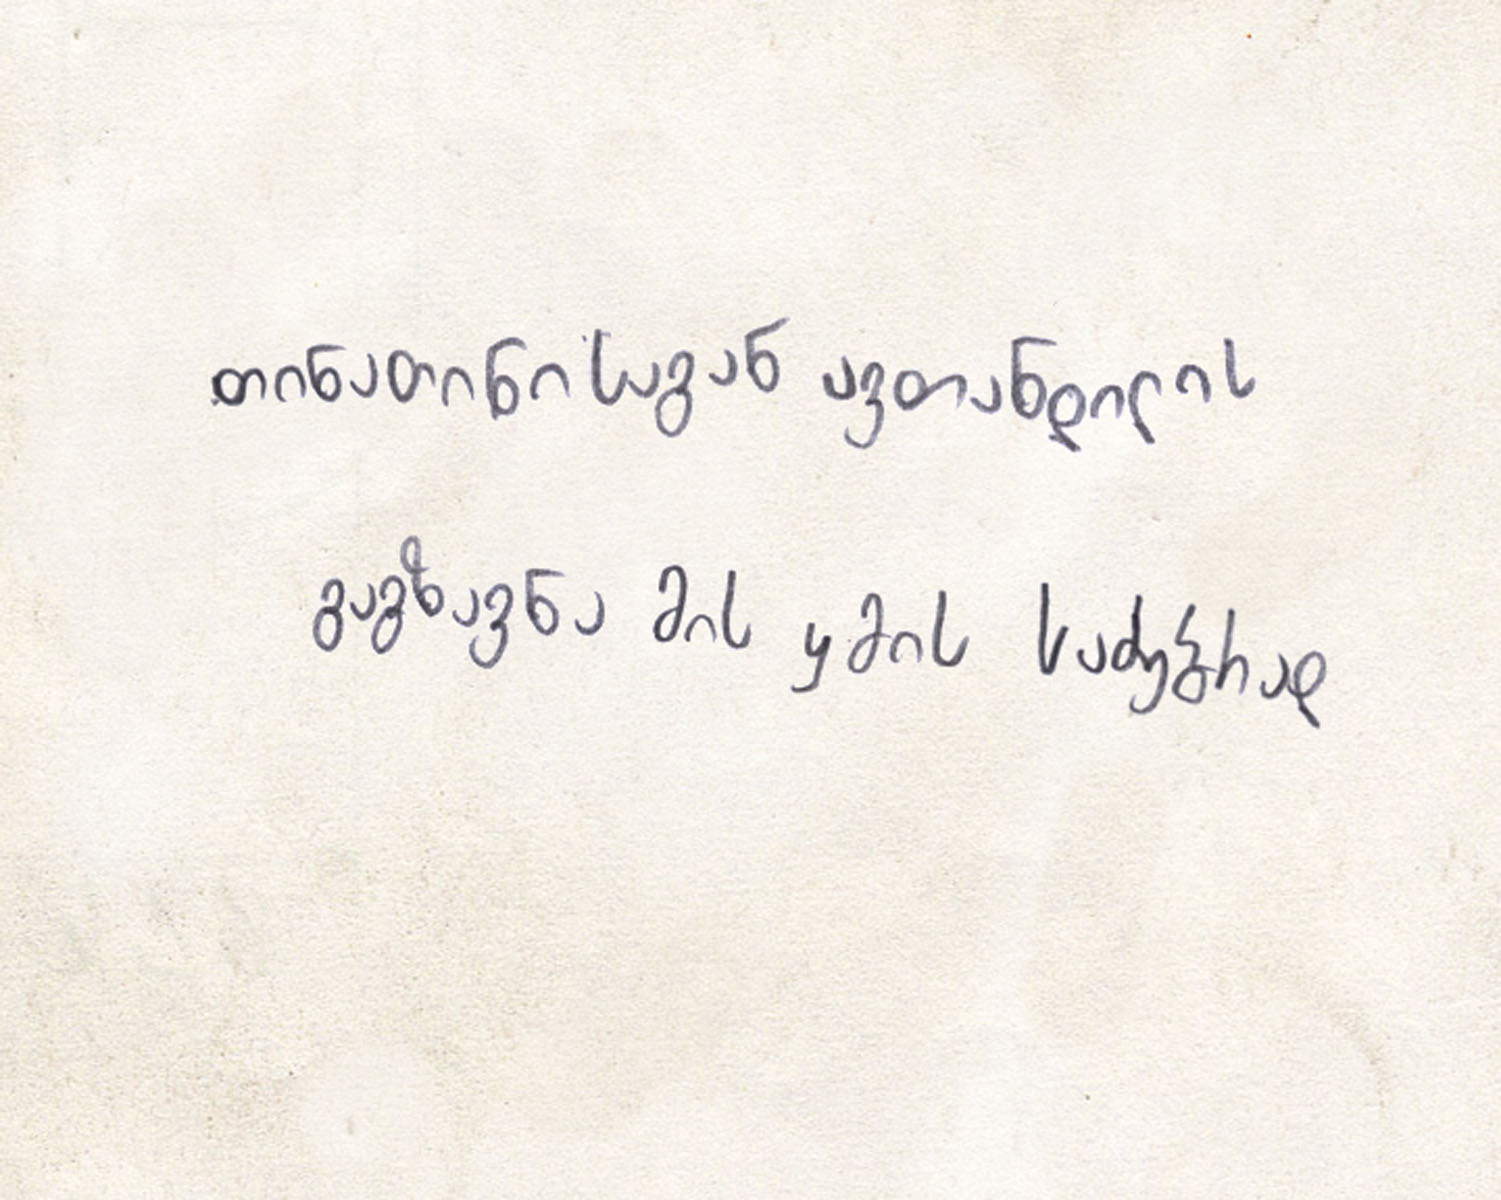 თინათინისაგან ავთანდილის
გაგზავნა მის ყმის საძებრად